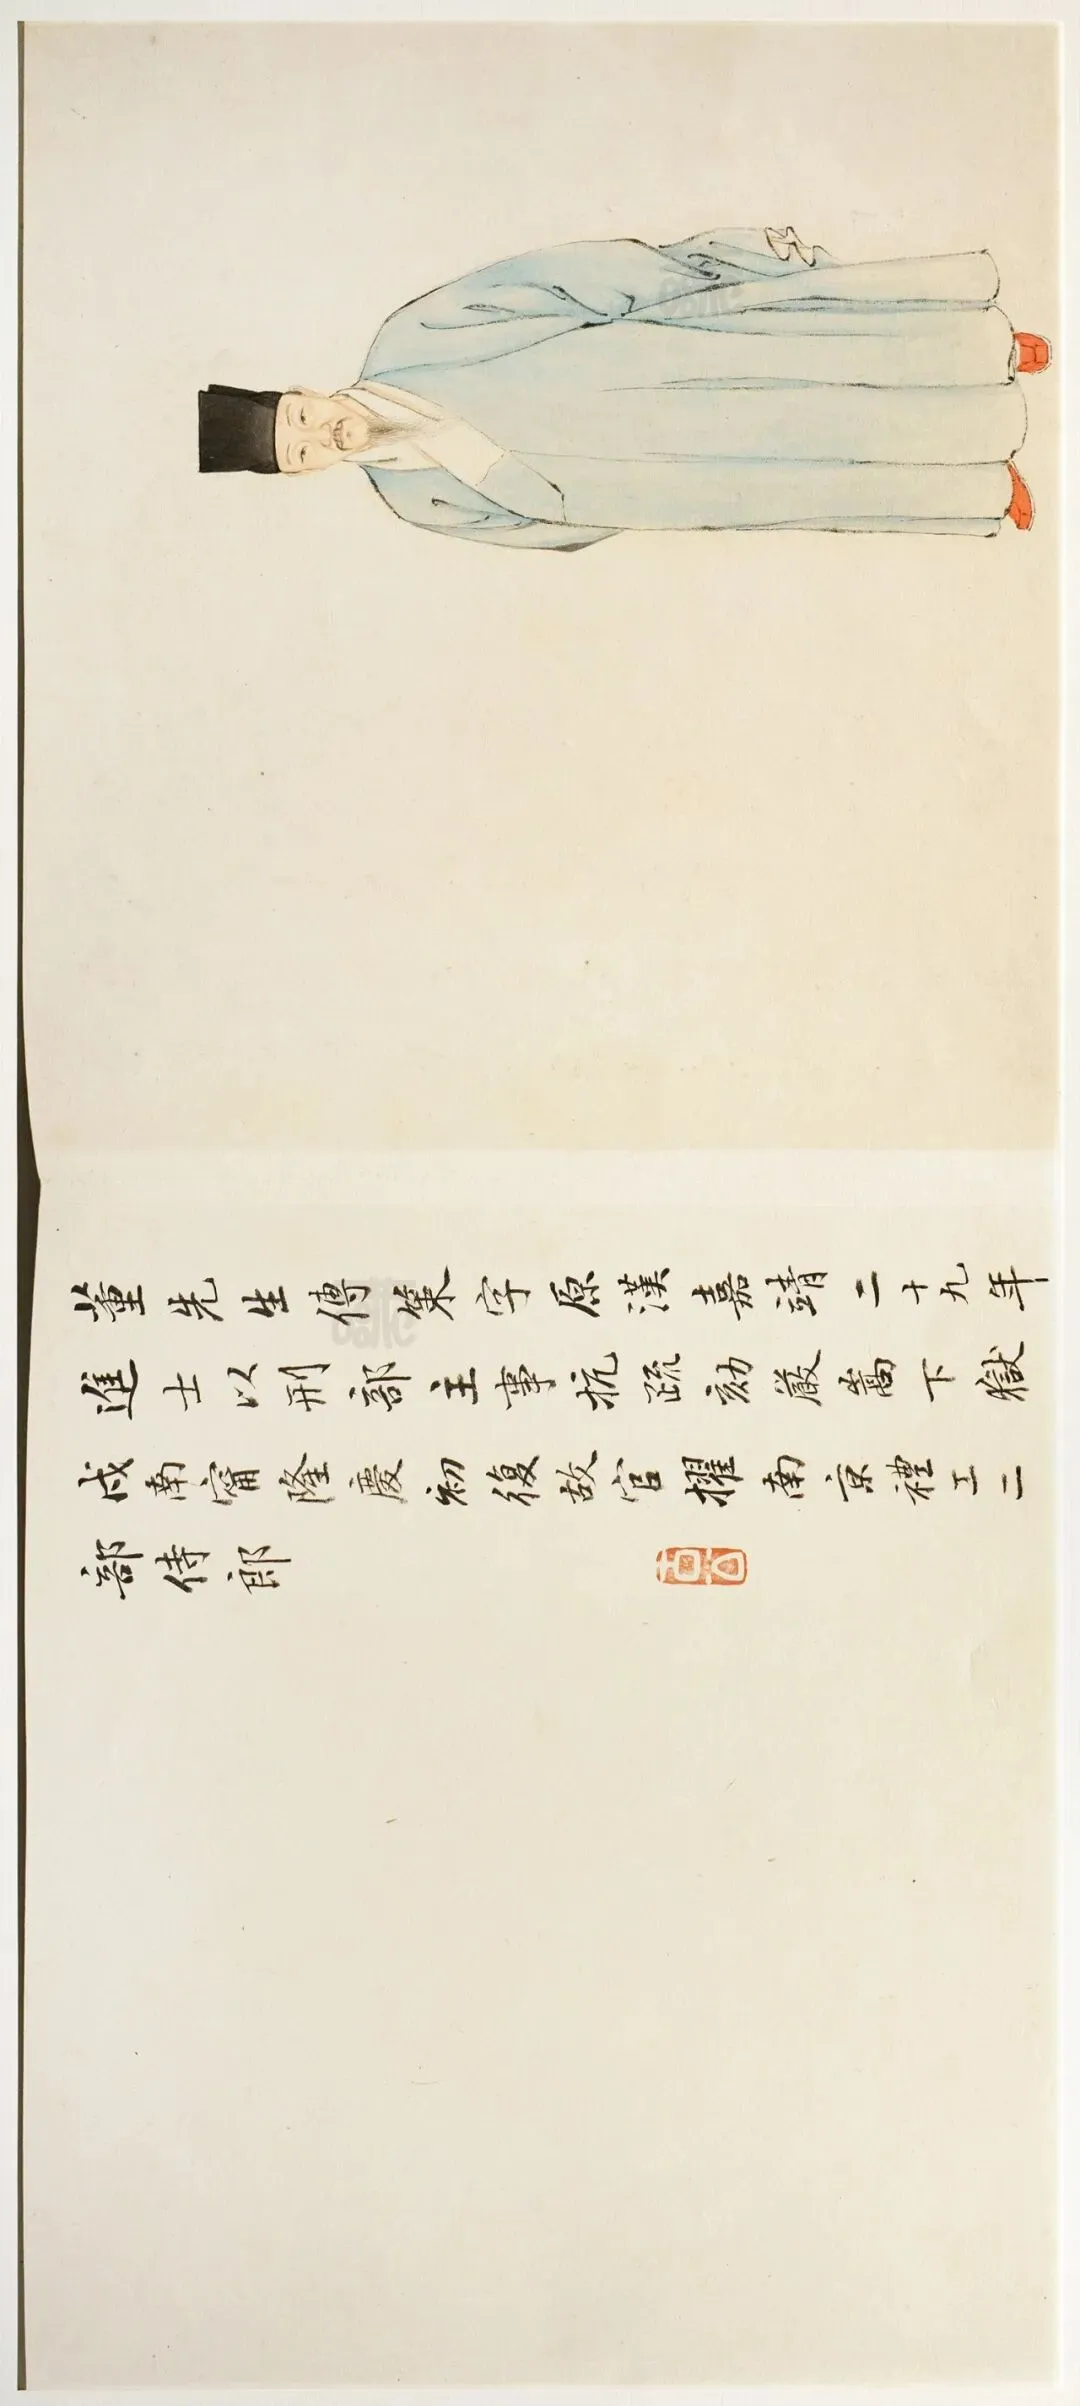 董先生傳策字原漢嘉靖二十九年
進士以刑部主事抗疏劾嚴嵩下獄
戍南甯隆慶初復故官擢南京禮工二
部侍郎